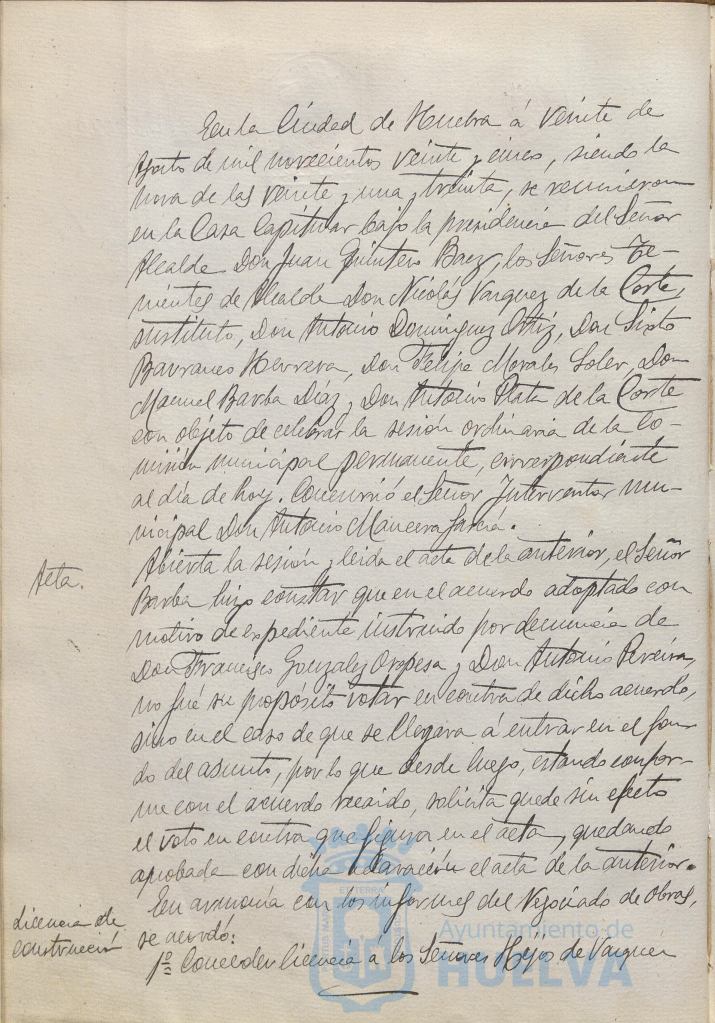 En la Ciudad de Huelva á veinte de
Agosto de mil novecientos veinte y cinco, siendo la
hora de las veinte y una y treinta, se reunieron
en la Casa Capitular bajo la presidencia del Señor
Alcalde Don Juan Quintero Baez, los Señores Te-
nientes de Alcalde Don Nicolás Vazquez de la Corte,
sustituto, Don Antonio Dominguez Ortiz, Don Sixto
Barranco Herrera, Don Felipe Morales Soler, Don
Manuel Barba Díaz y Don Antonio Plata de la Corte
con objeto de celebrar la sesión ordinaria de la Co-
misión municipal permanente, correspondiente
al día de hoy. Concurrió el Señor Interventor mu-
nicipal Don Antonio Mancera García.
Acta.
Abierta la sesión y leida el acta de la anterior, el Señor
Barba hizo constar que en el acuerdo adoptado con
motivo de expediente instruido por denuncia de
Don Francisco Gonzalez Oropesa y Don Antonio Pereira,
no fué su propósito votar en contra de dicho acuerdo,
sino en el caso de que se llegara á entrar en el fon-
do del asunto, por lo que desde luego, estando confor-
me con el acuerdo recaido, solicita quede sin efecto
el voto en contra que figura en el acta, quedando
aprobada con dicha aclaración el acta de la anterior.
Licencia de
construcción
En armonía con los informes del Negociado de Obras,
se acordó:
1º Conceder licencia á los Señores Hijos de Vazquez
Ayuntamiento de
HUELVA